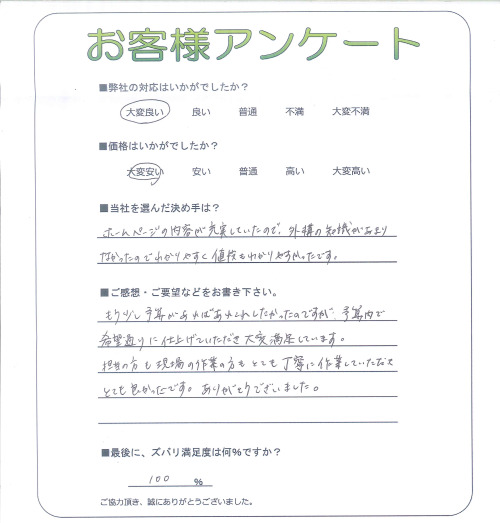 お客様アンケート
■弊社の対応はいかがでしたか？
大変良い 良い 普通 不満 大変不満
■価格はいかがでしたか？
大変安い 安い 普通 高い 大変高い
■当社を選んだ決め手は？
ホームページの内容が充実していたので、外構の知識があまり
なかったのでわかりやすく値段もわかりやすかったです。
■ご感想・ご要望などをお書き下さい。
もう少し予算があればあれこれしたかったのですが、予算内で
希望通りに仕上げていただき大変満足しています。
担当の方も現場の作業の方もとても丁寧に作業していただ
とても良かったです。ありがとうございました。
■最後に、ズバリ満足度は何％ですか？
100 ％
ご協力頂き、誠にありがとうございました。